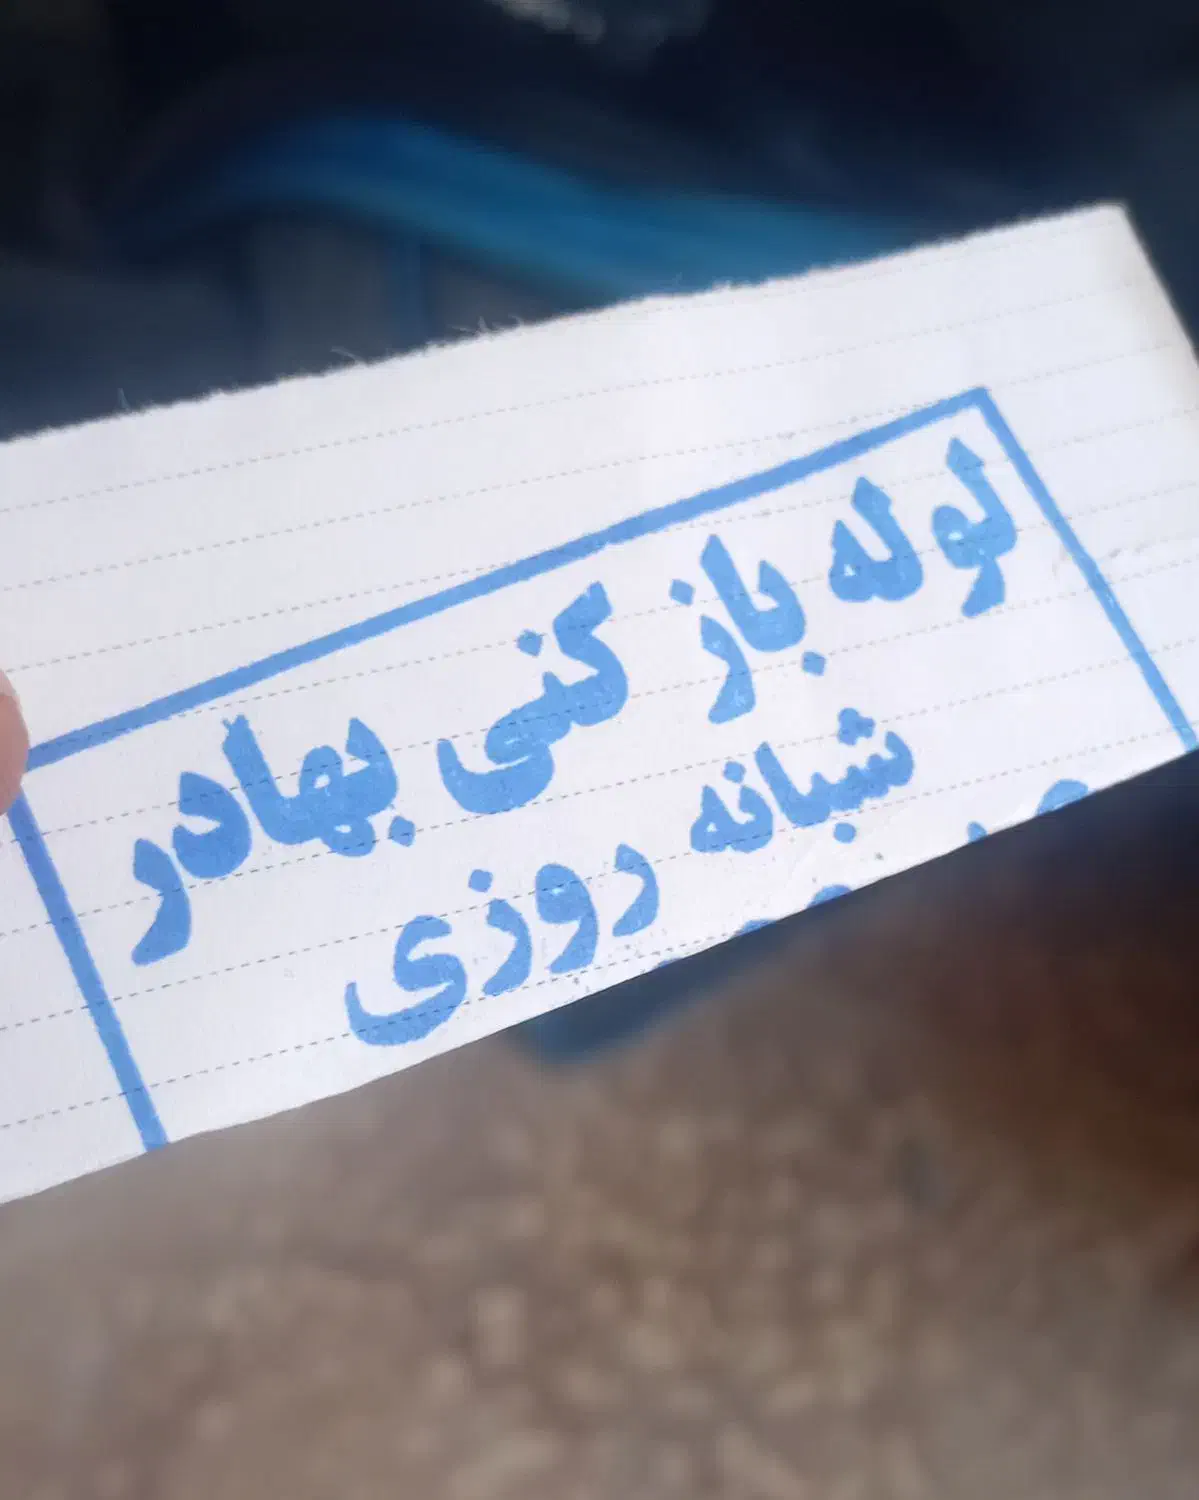 لوله باز کنی بهادر
شبانه روزی